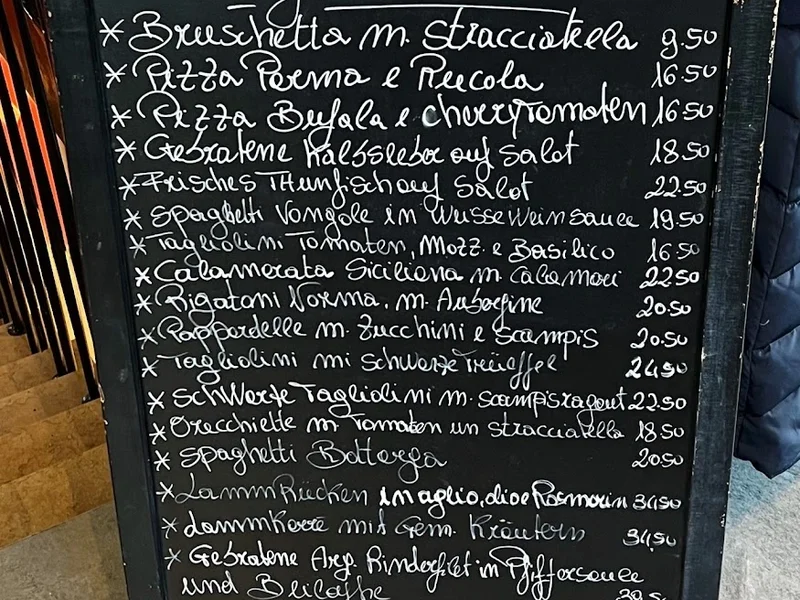 * Bruschetta m. Stracciatella 9.50
* Pizza Parma e Rucola 16.50
* Pizza Bufala e cherrytomaten 16.50
* Gebratene Kalbsleber auf Salat 18.50
* Frisches Thunfisch auf Salat 22.50
* Spaghetti Vongole in Weisse Weinsauce 19.50
* Tagliolini Tomaten, Mozz. e Basilico 16.50
* Calamarata Siciliana m. Calamari 22.50
* Rigatoni Norma. m. Aubergine 20.50
* Pappardelle m. Zucchini e Scampis 20.50
* Tagliolini mi Schwarze Trüeffel 24.50
* Schwarze Tagliolini m. Scampisragout 22.50
* Orecchiette m Tomaten un Stracciatella 18.50
* Spaghetti Botterga 20.50
* LammRücken in aglio, olio e Rosmarin 34.50
* Lammkarre mit Gem. Kräutern 34.50
* Gebratene Arg. Rinderfilet in Pfiffersauce
und Beilage